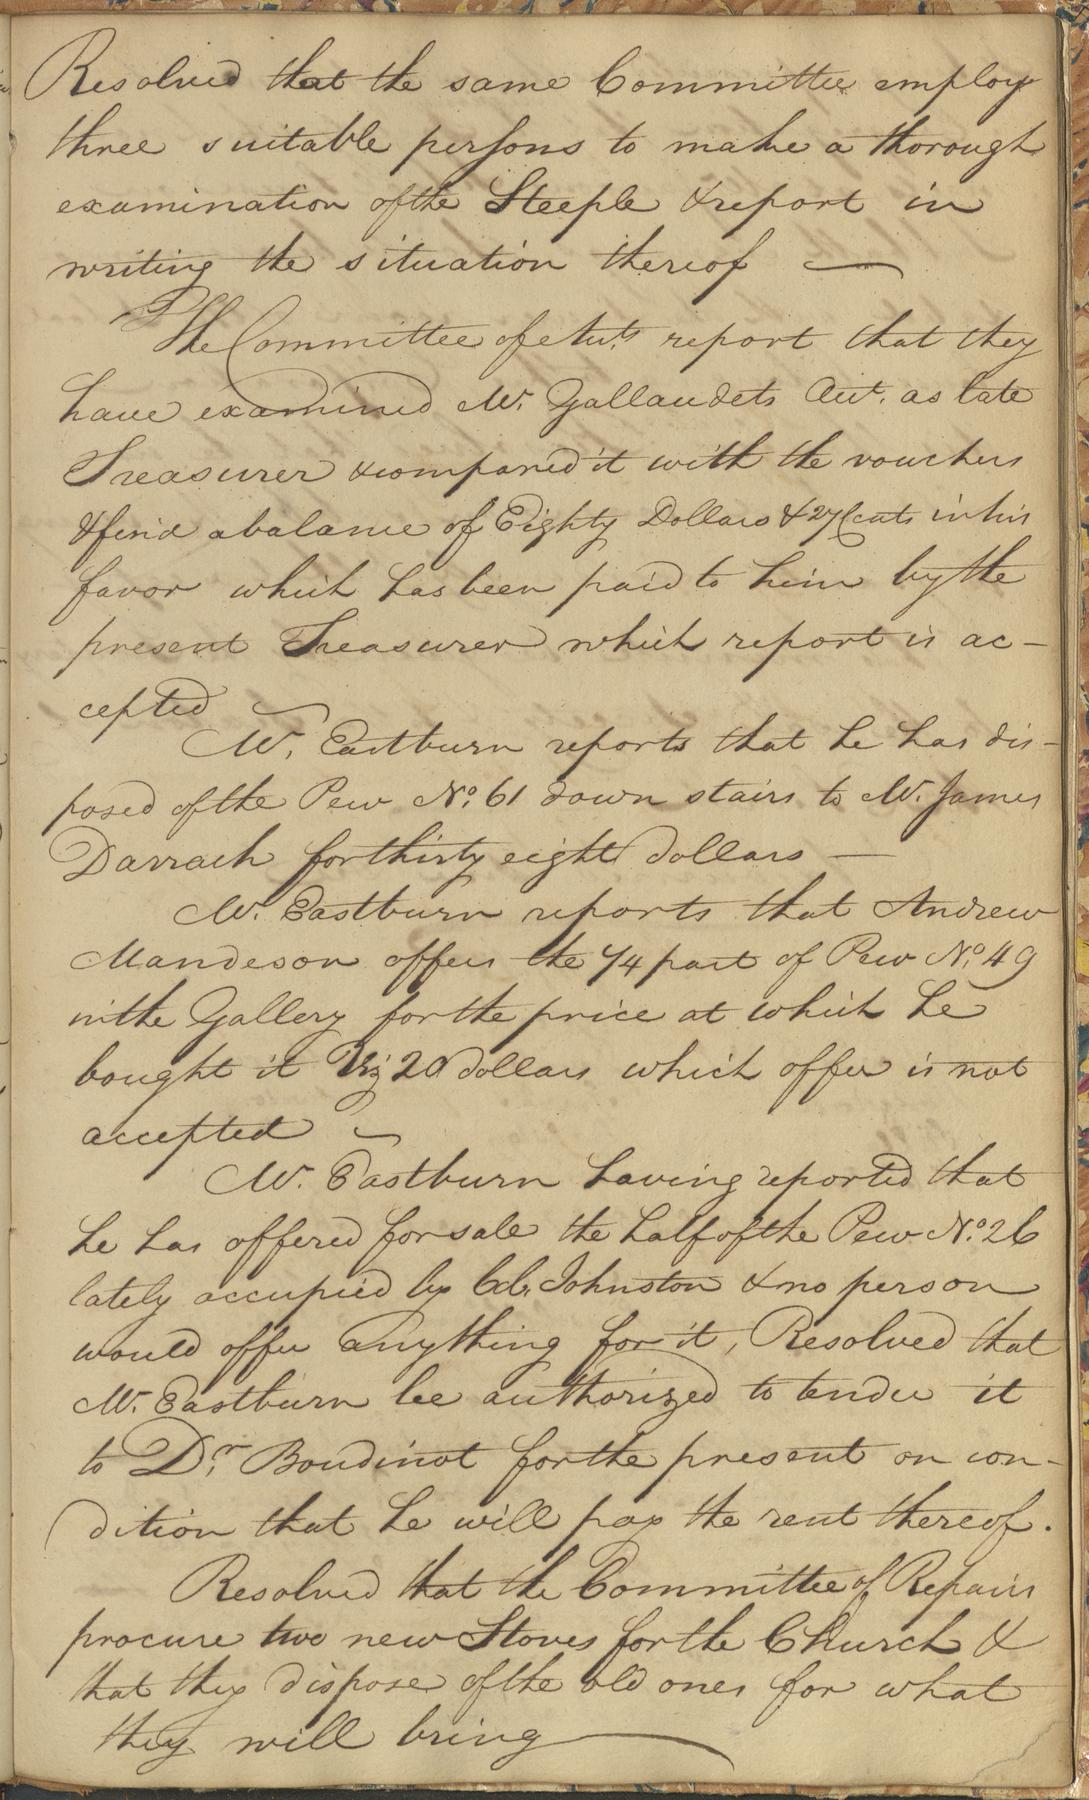 Resolved that the same Committee employ
three suitable persons to make a thorough
examination of the Steeple & report in
writing the situation thereof
The Committee of Accts. report that they
have examined Mr. Gallaudets Acct. as late
Treasurer & compared it with the vouchers
& find a balance of Eighty Dollars & 27 Cents in his
favor which has been paid to him by the
present Treasurer which report is ac-
cepted
Mr. Eastburn reports that he has dis-
posed of the Pew No. 61 down stairs to Mr. James
Darrach for thirty eight dollars —
Mr. Eastburn reports that Andrew
Mandeson offers the 1/4 part of Pew No. 49
in the Gallery for the price at which he
bought it Viz 20 dollars which offer is not
accepted
Mr. Eastburn having reported that
he has offered for sale the half of the Pew No. 26
lately occupied by Col. Johnston & no person
would offer anything for it, Resolved that
Mr. Eastburn be authorized to tender it
to Dr. Boudinot for the present on con-
dition that he will pay the rent thereof.
Resolved that the Committee of Repairs
procure two new Stoves for the Church &
that they dispose of the old ones for what
they will bring